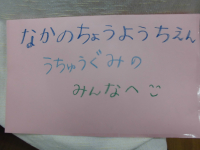 なかのちょうようちえん
うちゅうぐみの
みんなへ